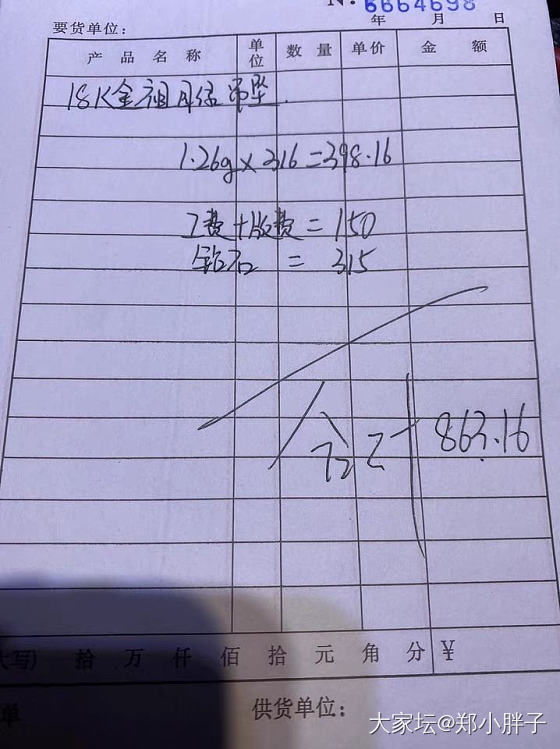 N: 6664698
要货单位： 年 月 日
产品名称 单位 数量 单价 金额
18K金祖母绿吊坠
1.26g×316=398.16
工费+版费=150
钻石=315
合计 863.16
大写) 拾 万 仟 佰 拾 元 角 分 ¥
单 供货单位：
大家坛@郑小胖子